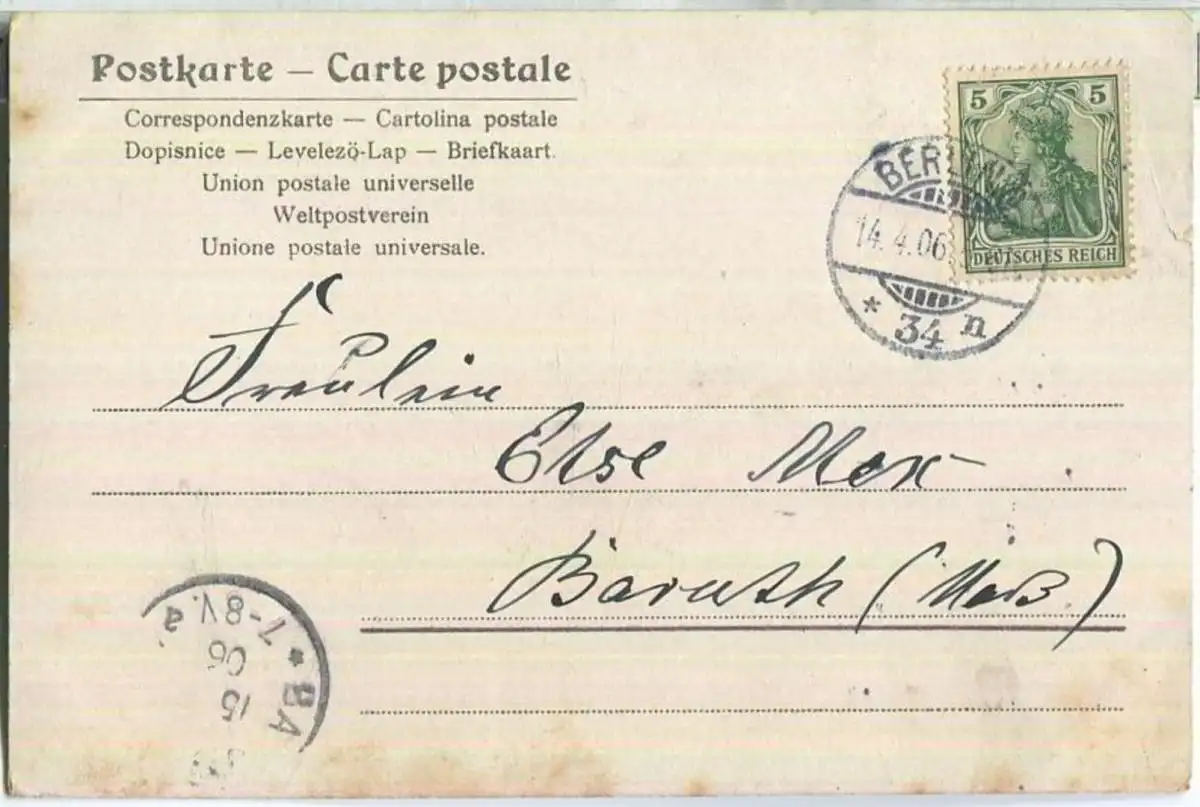 Postkarte — Carte postale
Correspondenzkarte — Cartolina postale
Dopisnice — Levelezö-Lap — Briefkaart.
Union postale universelle
Weltpostverein
Unione postale universale.
5 5
DEUTSCHES REICH
BERLIN
14.4.06
* 34 n
Fräulein
Else
Baruth (Mark)
* BA
15
06
7-8V.
a